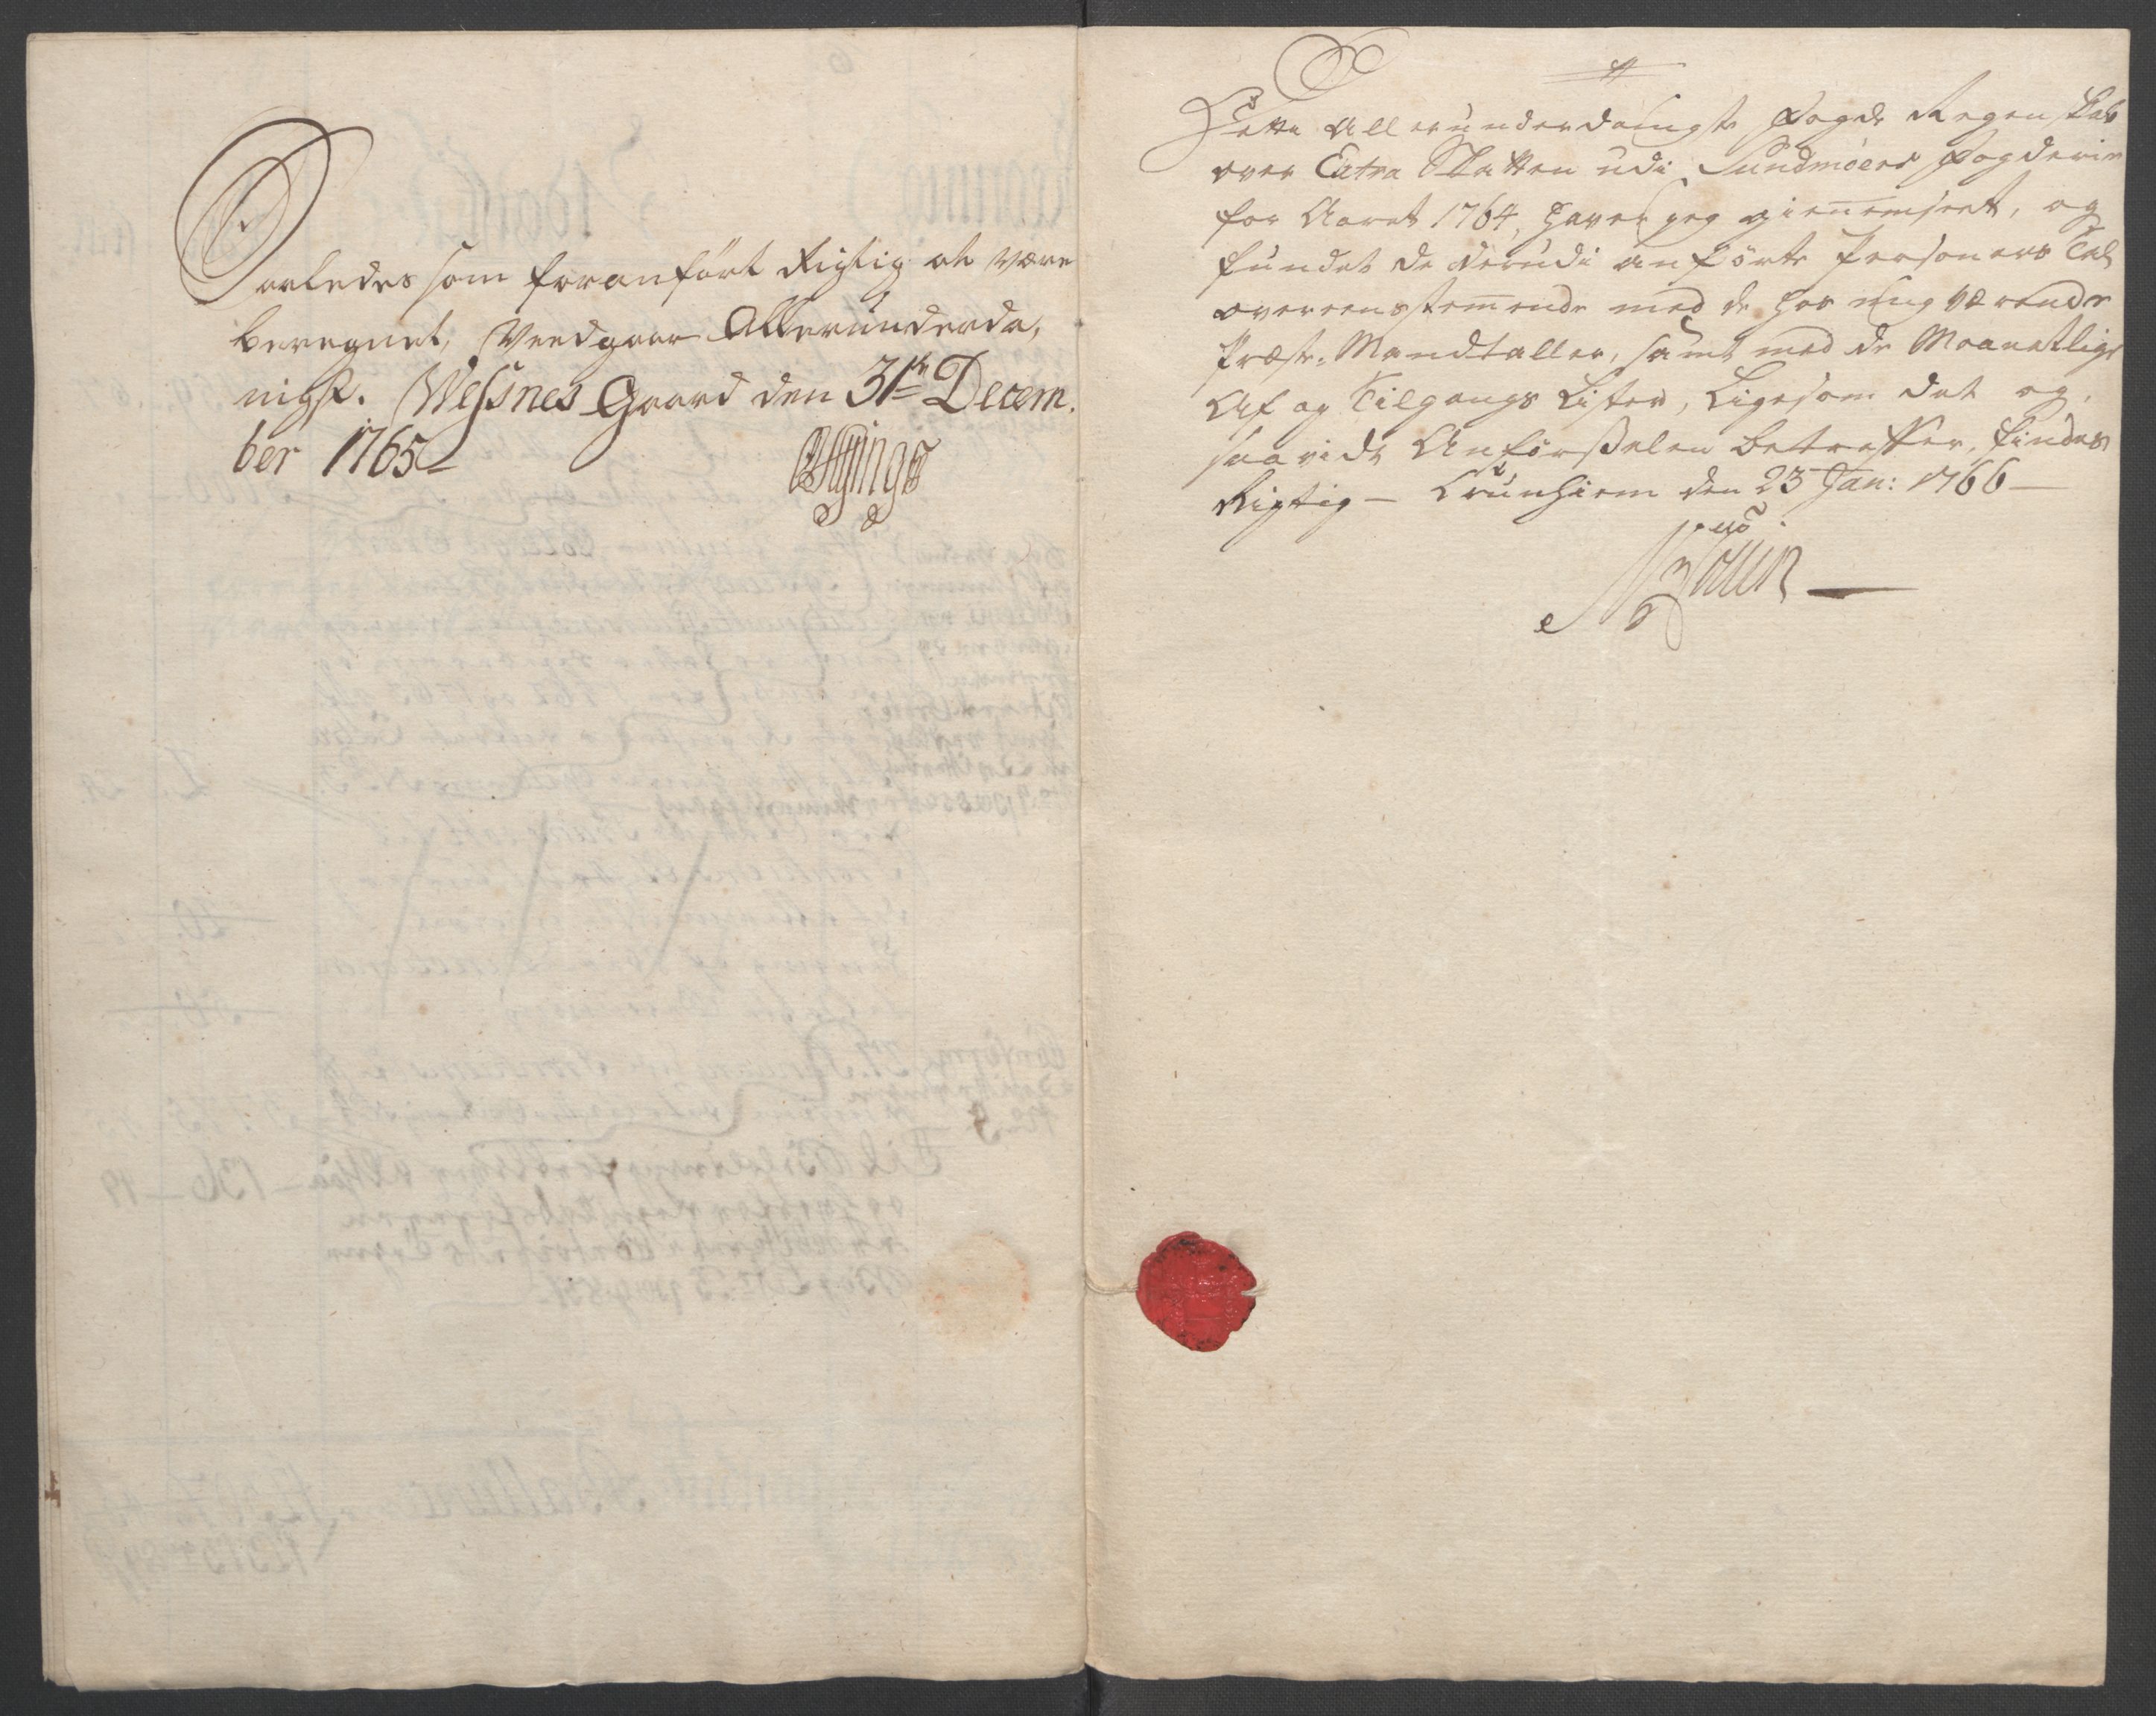 Saaledes som foranført Rigtig at være
beregnet, Vendgaar Allerunderda,
nigst. Wesnes Gaard den 31te Decem,
ber 1765

Dette Allerunderdanigste Fogde Regenskab
over Extra Skatten udi Sundmøers Fogderie
for Aaret 1764, haver jeg gienemseet, og
fundet de derudi anførte Personers Tal
overeenstemende med de hos mig værende
Præste-Mandtaller, samt med de Maanetlige
Af og Tilgangs Lister, Ligesom det og,
saavidt Anførselen betreffer, findes
Rigtig – Trundhiem den 23 Jan: 1766 –